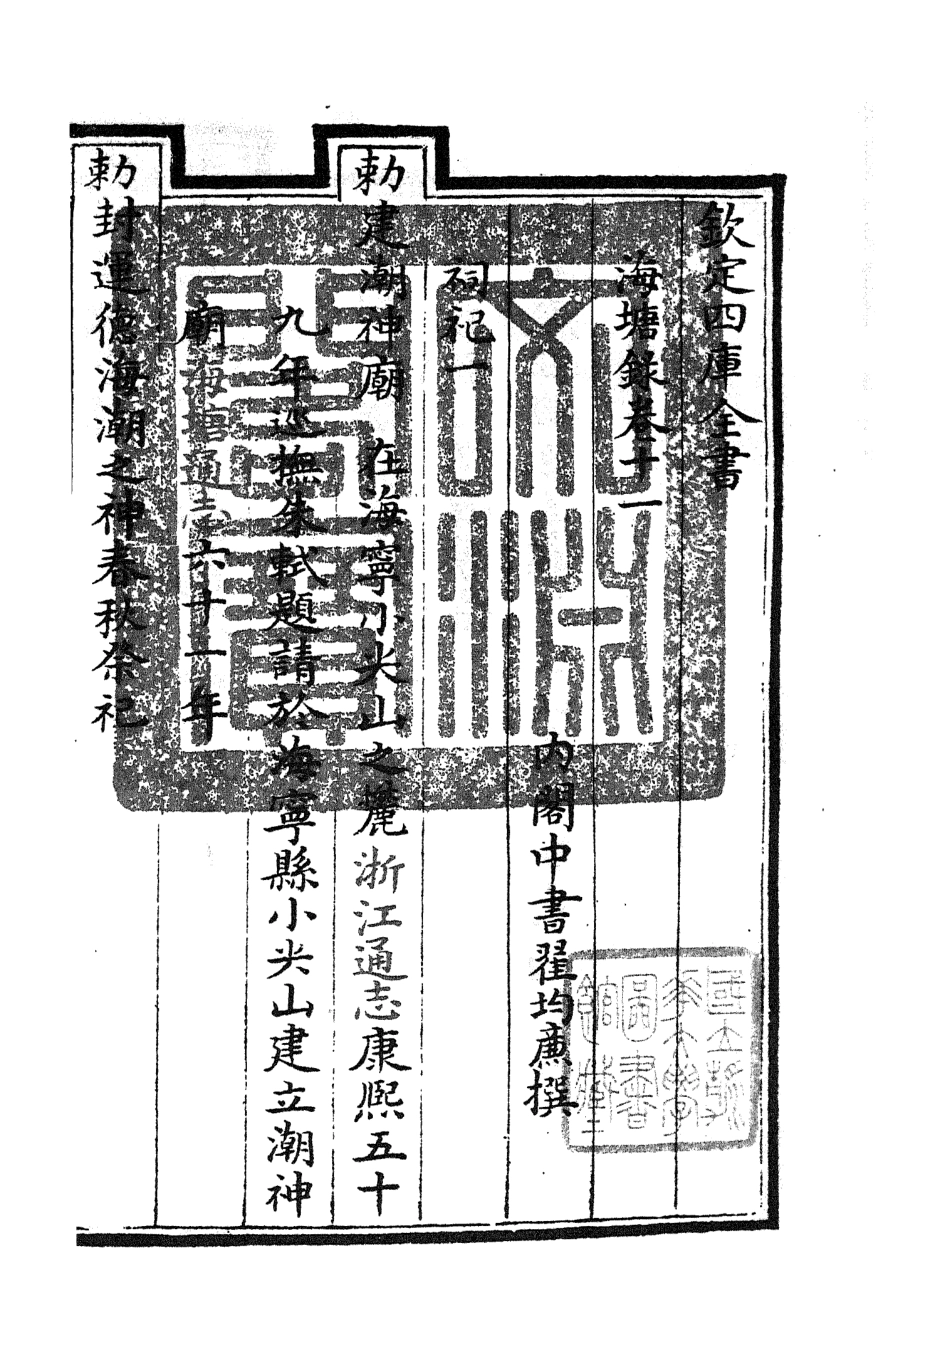 欽定四庫全書
海塘錄卷十一
內閣中書翟均廉撰
祠祀一
勅建潮神廟 在海寧小尖山之麓浙江通志康熙五十
九年巡撫朱軾題請於海寧縣小尖山建立潮神
廟海塘通志六十一年
勅封運德海潮之神春秋祭祀
文淵閣寶